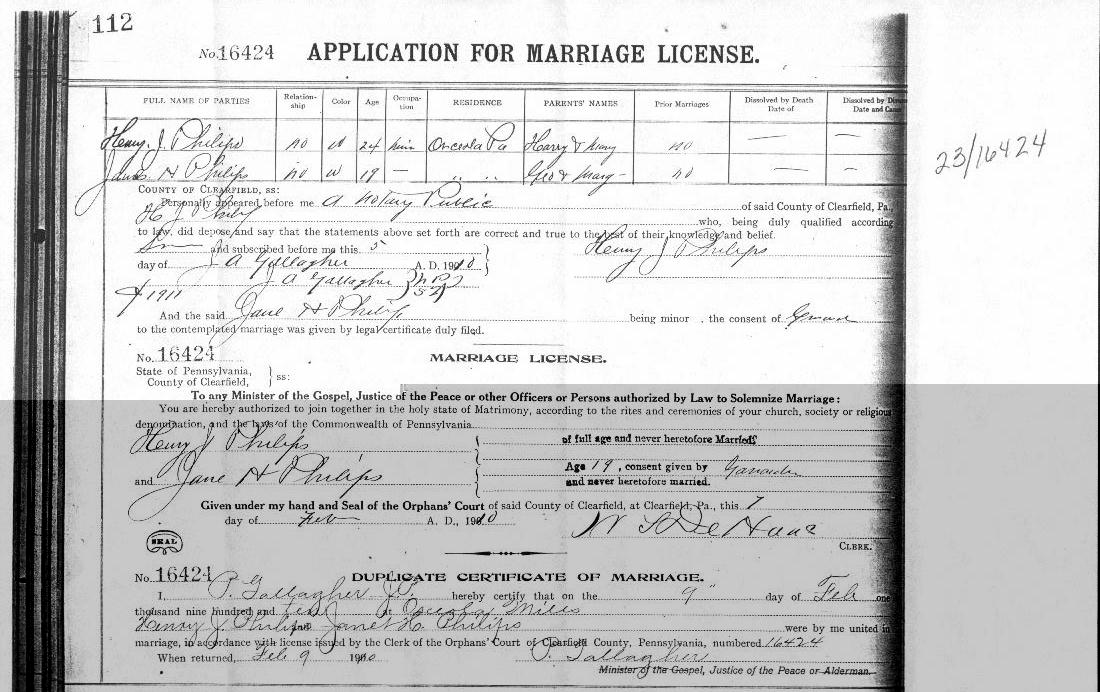 112
No. 16424 APPLICATION FOR MARRIAGE LICENSE.
FULL NAME OF PARTIES Relation-ship Color Age Occupa-tion RESIDENCE PARENTS' NAMES Prior Marriages Dissolved by Death Date of Dissolved by Date and
Henry J. Philips no W 24 Osceola Pa Harry & Mary no — —
H Philips no W 19 — " " Geo & Mary no — —
23/16424
COUNTY OF CLEARFIELD, SS:
Personally appeared before me a Notary Public of said County of Clearfield, Pa.,
H J Philips who, being duly qualified according
to law, did depose and say that the statements above set forth are correct and true to the best of their knowledge and belief.
and subscribed before me this 5 Henry J Philips
day of J A Gallagher A. D. 1910
J A Gallagher
1911
And the said Jane H Philips being minor , the consent of
to the contemplated marriage was given by legal certificate duly filed.
No. 16424 MARRIAGE LICENSE.
State of Pennsylvania,
County of Clearfield, } ss:
To any Minister of the Gospel, Justice of the Peace or other Officers or Persons authorized by Law to Solemnize Marriage:
You are hereby authorized to join together in the holy state of Matrimony, according to the rites and ceremonies of your church, society or religious
denomination, and the laws of the Commonwealth of Pennsylvania.
Henry J Philips of full age and never heretofore Married;
and Jane H Philips Age 19, consent given by
and never heretofore married.
Given under my hand and Seal of the Orphans' Court of said County of Clearfield, at Clearfield, Pa., this 7
day of Feb A. D., 1910
SEAL
CLERK.
No. 16424 DUPLICATE CERTIFICATE OF MARRIAGE.
I, P. Gallagher J.P. hereby certify that on the 9" day of Feb one
thousand nine hundred and ten at Osceola Mills
Henry J. Philips and Janet H. Philips were by me united in
marriage, in accordance with license issued by the Clerk of the Orphans' Court of Clearfield County, Pennsylvania, numbered 16424
When returned, Feb 9 1910 P. Gallagher
Minister of the Gospel, Justice of the Peace or Alderman.